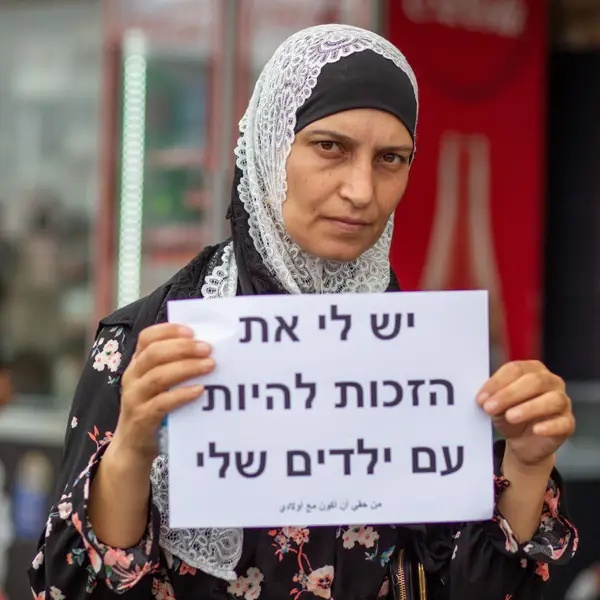 Coca-Cola
יש לי את
הזכות להיות
עם ילדים שלי
من حقي أن أكون مع أولادي